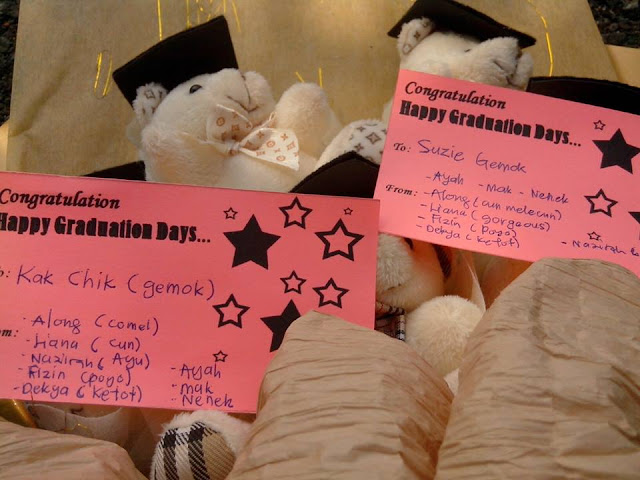 Congratulation
Happy Graduation Days...
To: Suzie Gemok
- Ayah - Mak - Nenek
From: - Along (cun melecun)
- Liana (gorgeous)
- Fizin (poyo)
- Dekya (ketot)
- Nazirah
Congratulation
Happy Graduation Days...
To: Kak Chik (gemok)
From: - Along (comel)
- Liana (cun)
- Nazirah (Ayu)
- Fizin (poyo)
- Dekya (ketot)
- Ayah
- mak
- Nenek